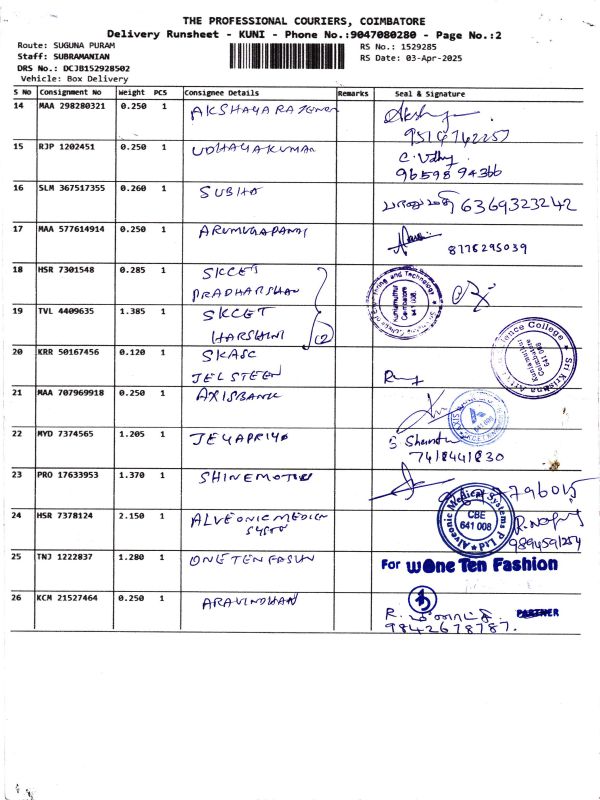 THE PROFESSIONAL COURIERS, COIMBATORE
Delivery Runsheet - KUNI - Phone No.:9047080280 - Page No.:2
Route: SUGUNA PURAM
RS No.: 1529285
Staff: SUBRAMANIAN
RS Date: 03-Apr-2025
DRS No.: DCJB15292B502
Vehicle: Box Delivery
S No Consignment No Weight PCS Consignee Details Remarks Seal & Signature
14 MAA 298280321 0.250 1 AKSHAYA RAJENDRAN
9514742257
15 RJP 1202451 0.250 1 UDHAYAKUMAR C. Udhay
9659894366
16 SLM 367517355 0.260 1 SUBHA 6369323242
17 MAA 577614914 0.250 1 ARUMUGAPANDI
8778295039
18 HSR 7301548 0.285 1 SKCET
PRADHARSHAN
19 TVL 4409635 1.385 1 SKCET
HARSHINI (2)
20 KRR 50167456 0.120 1 SKASC
JELSTEEN
21 MAA 707969918 0.250 1 AXISBANK
22 MYD 7374565 1.205 1 JEYAPRIYA
7418441830
23 PRO 17633953 1.370 1 SHINEMOTORS
24 HSR 7378124 2.150 1 ALVEONIC MEDICAL
Alveonic Medical Systems P Ltd
CBE
641 008
9894591254
25 TNJ 1222837 1.280 1 ONE TEN FASHION For wOne Ten Fashion
26 KCM 21527464 0.250 1 ARAVINDHAN
PARTNER
9842678787.